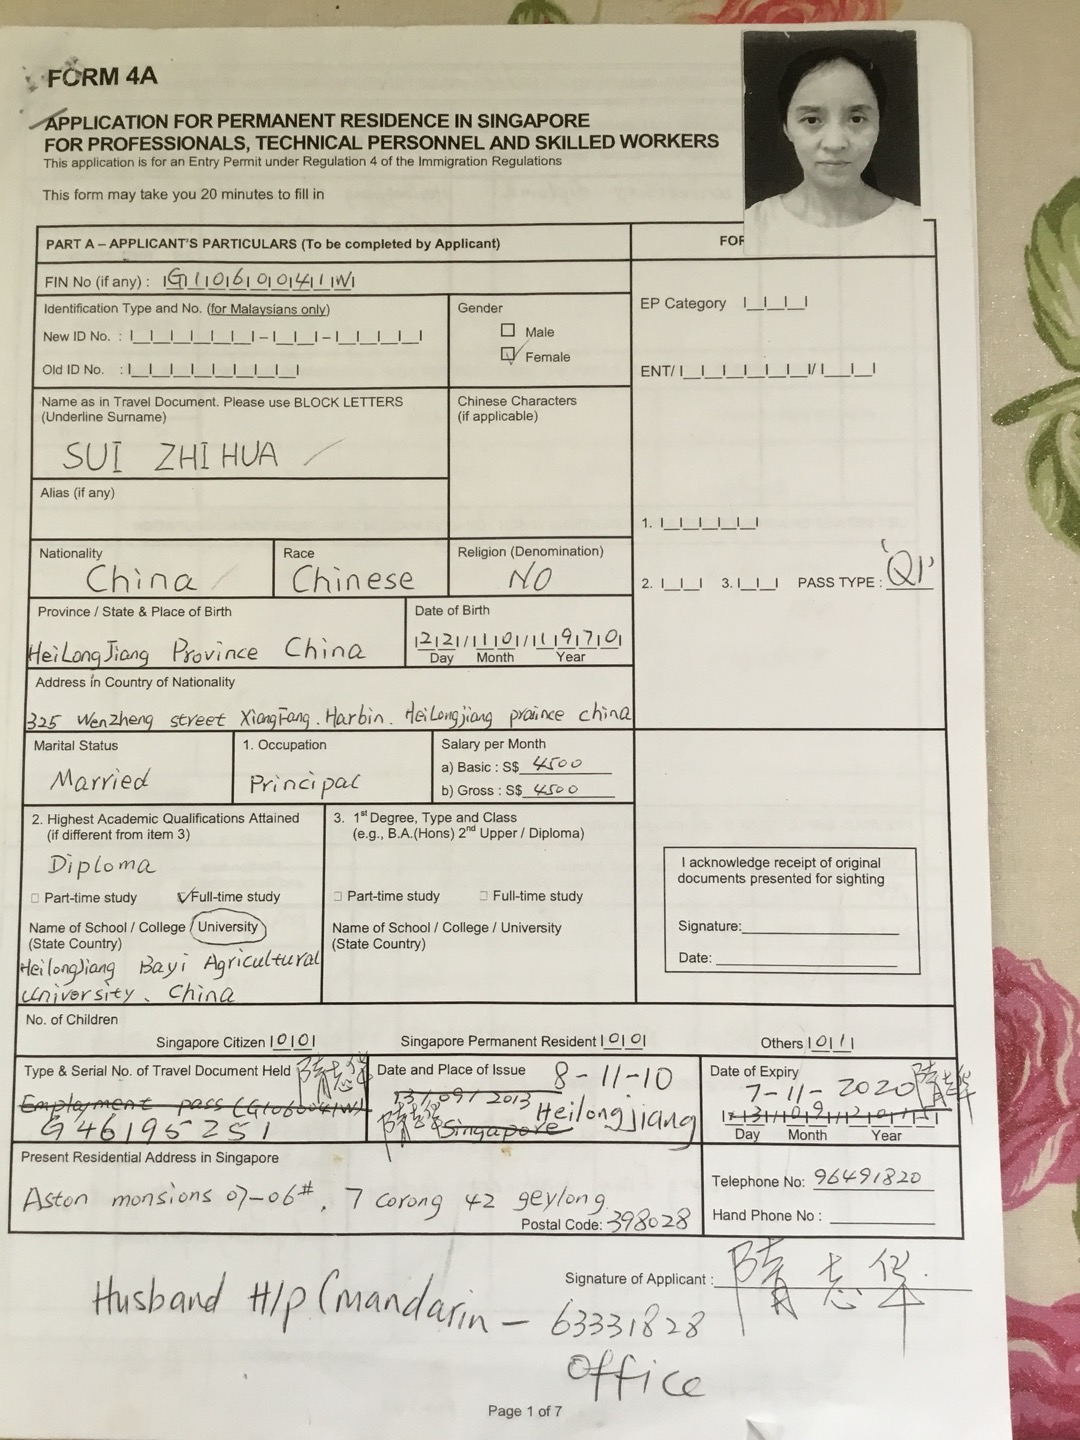 FORM 4A
APPLICATION FOR PERMANENT RESIDENCE IN SINGAPORE
FOR PROFESSIONALS, TECHNICAL PERSONNEL AND SKILLED WORKERS
This application is for an Entry Permit under Regulation 4 of the Immigration Regulations
This form may take you 20 minutes to fill in
PART A – APPLICANT'S PARTICULARS (To be completed by Applicant)
FOR
FIN No (if any) : G1060041W
Identification Type and No. (for Malaysians only)
New ID No. :
Old ID No. :
Gender
Male
Female
EP Category
ENT/
Name as in Travel Document. Please use BLOCK LETTERS
(Underline Surname)
SUI ZHI HUA
Chinese Characters
(if applicable)
Alias (if any)
1.
Nationality
China
Race
Chinese
Religion (Denomination)
NO
2. 3. PASS TYPE : 'Q1'
Province / State & Place of Birth
HeiLongJiang Province China
Date of Birth
22/10/1970
Day Month Year
Address in Country of Nationality
325 Wenzheng street XiangFang. Harbin. HeiLongjiang praince china
Marital Status
Married
1. Occupation
Principal
Salary per Month
a) Basic : S$ 4500
b) Gross : S$ 4500
2. Highest Academic Qualifications Attained
(if different from item 3)
Diploma
Part-time study Full-time study
Name of School / College / University
(State Country)
HeilongJiang Bayi Agricultural
University. China
3. 1st Degree, Type and Class
(e.g., B.A.(Hons) 2nd Upper / Diploma)
Part-time study Full-time study
Name of School / College / University
(State Country)
I acknowledge receipt of original
documents presented for sighting
Signature:
Date:
No. of Children
Singapore Citizen 00 Singapore Permanent Resident 00 Others 01
Type & Serial No. of Travel Document Held 隋志华
Employment pass (G1060041W)
G46195251
Date and Place of Issue 8-11-10
13/09/2013
Singapore Heilongjiang
Date of Expiry
7-11-2020 隋志华
Day Month Year
Present Residential Address in Singapore
Aston monsions 07-06#, 7 corong 42 geylong
Postal Code: 398028
Telephone No: 96491820
Hand Phone No :
Signature of Applicant : 隋志华
Husband H/p (mandarin – 63331828
Office
Page 1 of 7